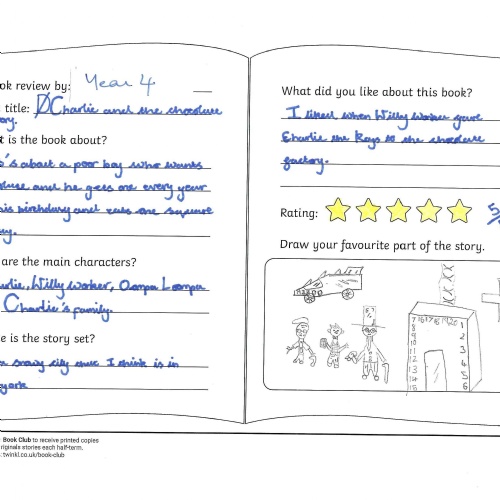 ok review by: Year 4
title: Charlie and the chocolate
ory.
t is the book about?
's about a poor boy who wants
and he gets one every year
is birthday and eats one square
ay.
are the main characters?
rlie, Willy Worker, Oompa Loomper
Charlie's family.
e is the story set?
snowy city and I think is in
york
Book Club to receive printed copies
riginals stories each half-term.
: twinkl.co.uk/book-club
What did you like about this book?
I liked when Willy Worker gave
Charlie the Keys to the chocolate
factory.
Rating: 5/
Draw your favourite part of the story.
7 16 17 18 19 20 1
8 2
9
10 3
11
12 4
13
14 5
15 6